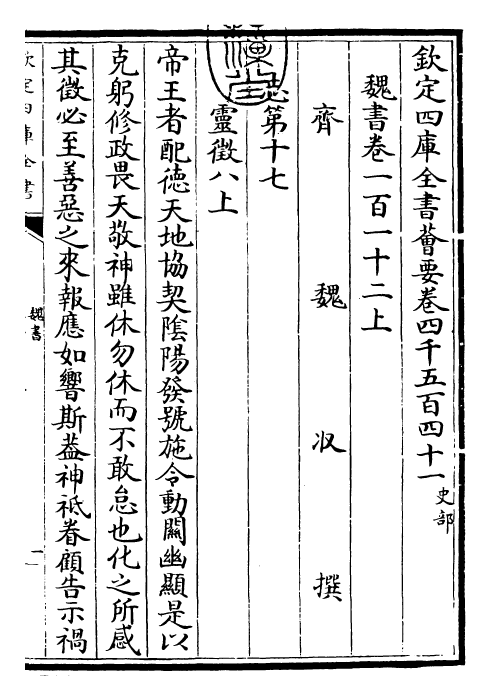 欽定四庫全書薈要卷四千五百四十一 史部
魏書卷一百一十二上
齊 魏收 撰
志第十七
靈徵八上
帝王者配徳天地協契隂陽發號施令動關幽顯是以
克躬修政畏天敬神雖休勿休而不敢怠也化之所感
其徵必至善惡之來報應如響斯葢神祇眷顧告示禍
欽定四庫全書
魏書
一